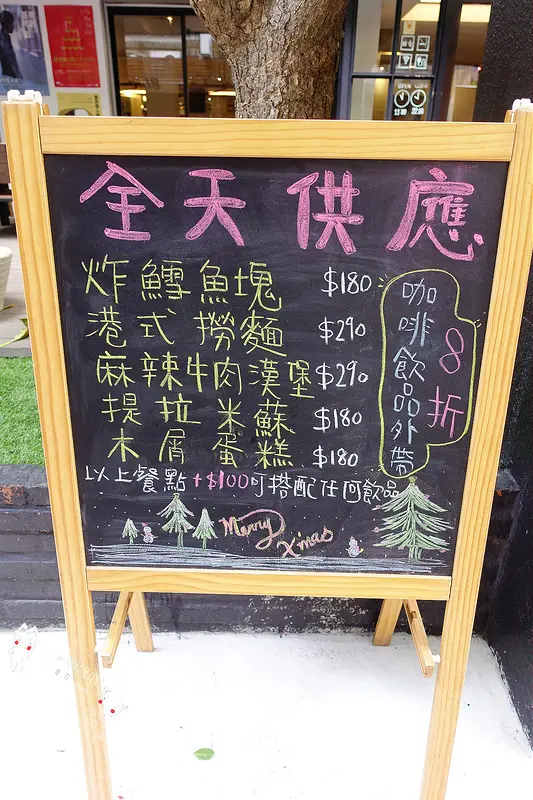 全天供應
炸鱈魚塊 $180
港式撈麵 $290
麻辣牛肉漢堡 $290
提拉米蘇 $180
木屑蛋糕 $180
咖啡飲品外帶
8折
以上餐點+$100可搭配任何飲品
Merry
X'mas